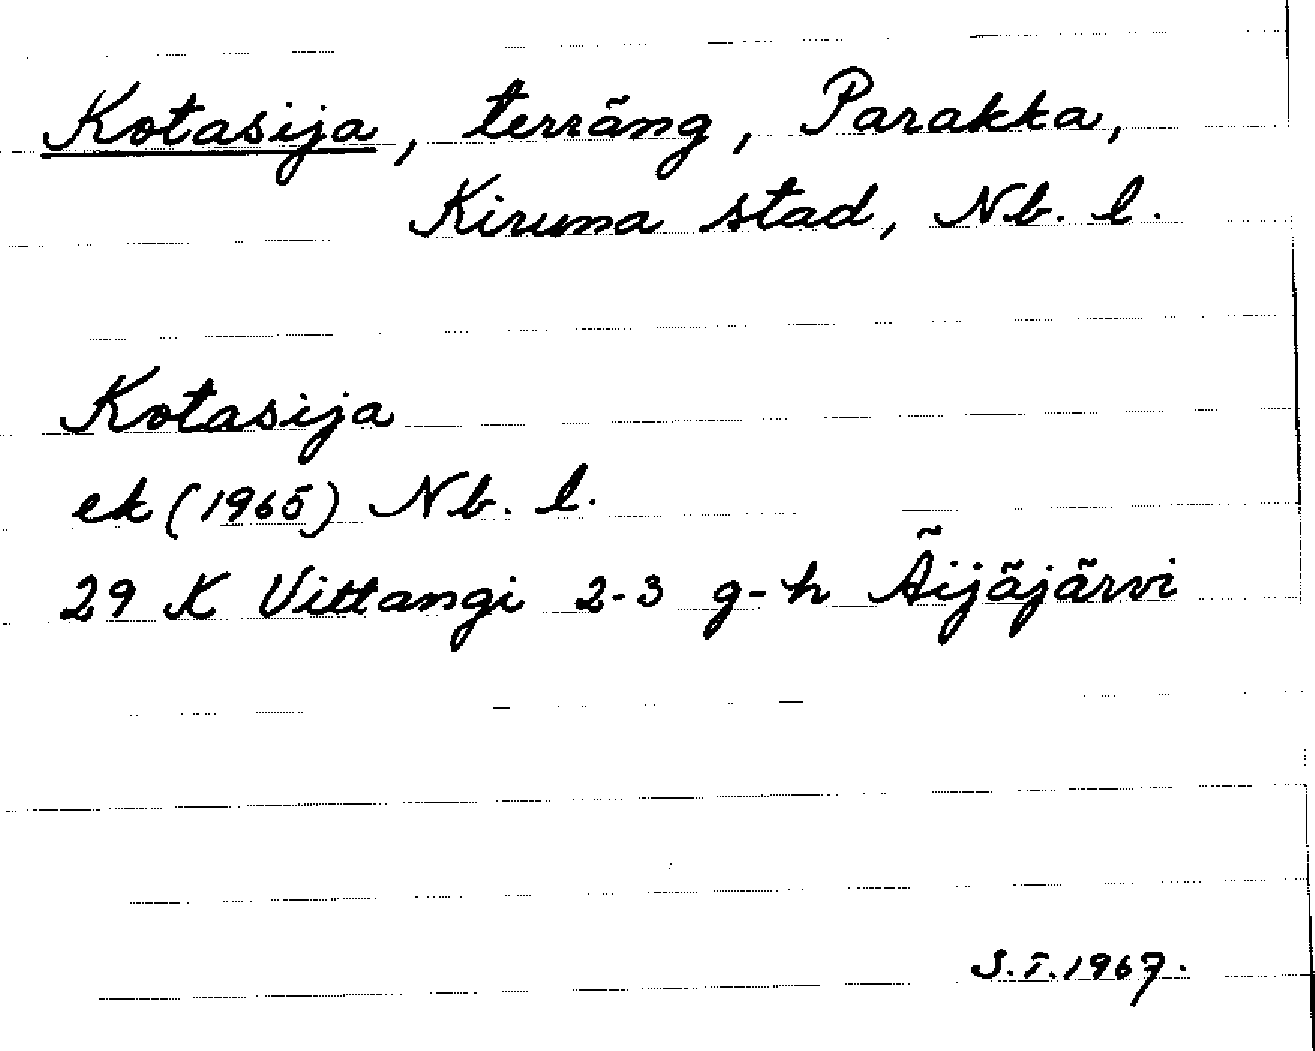 Kotasija, terräng, Parakka,
Kiruna stad, Nb. l.
Kotasija
ek (1965) Nb. l.
29 K Vittangi 2-3 g-h Äijäjärvi
S.T.1967.